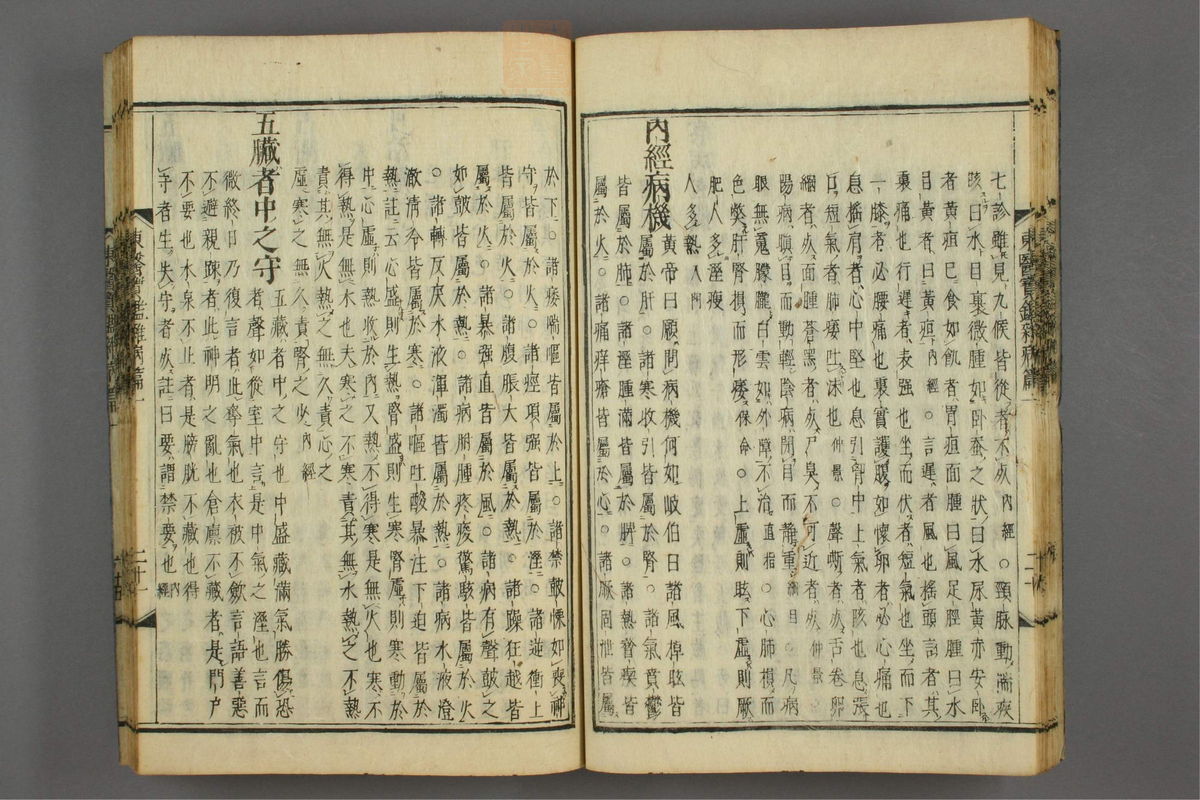 七診雖見九候皆從者不死內經○頸脉動喘疾
咳曰水目裹微腫如臥蚕之狀曰水尿黃赤安臥
者黃疸已食如飢者胃疸面腫曰風足脛腫曰水
目黃者曰黃疸內經○言遲者風也搖頭言者其
裏痛也行遲者表强也坐而伏者短氣也坐而下
一膝者必腰痛也裏實護腹如懷卵者必心痛也
息搖肩者心中堅也息引胷中上氣者咳也息張
口短氣者肺痿吐沫也仲景○聲嘶
陽病瞋目而動輕陰病閉目而靜重綱目○凡病
眼無䰟朦朧白雲如外障不治直指○心肺損而
色獘肝腎損而形痿保命○上虛則眩下虛則厥
肥人多濕瘦
人多熱入門
內經病機
黃帝曰願聞病機何如岐伯曰諸風掉眩皆
屬於肝○諸寒收引皆屬於腎○諸氣賁鬱
皆屬於肺○諸濕腫滿皆屬於脾○諸熱瞀瘈皆
屬於火○諸痛痒瘡皆屬於心○諸厥固泄皆屬
於下○諸痿喘嘔皆屬於上○諸禁鼓慄如喪神
守皆屬於火○諸痙項强皆屬於濕○諸逆衝上
皆屬於火○諸腹脹大皆屬於熱○諸躁狂越皆
屬於火○諸暴强直皆屬於風○諸病有聲鼓之
如鼓皆屬於熱○諸病胕腫疼痠驚駭皆屬於火
○諸轉反戾水液渾濁皆屬於熱○諸病水液澄
澈清冷皆屬於寒○諸嘔吐酸暴注下迫皆屬於
熱註云心盛則生熱腎盛則生寒腎虛則寒動於
中心虛則熱收於內又熱不得寒是無火也寒不
得熱是無水也夫寒之不寒責其無水熱之不熱
責其無火熱之不久責心之
虛寒之不久責腎之少內經
五臟者中之守
五臟者中之守也中盛藏滿氣勝傷恐
者聲如從室中言是中氣之濕也言而
微終日乃復言者此奪氣也衣被不斂言語善惡
不避親踈者此神明之亂也倉廩不藏者是門戶
不要也水泉不止者是膀胱不藏也得
守者生失守者死註曰要謂禁要也內經
東醫寶鑑雜病篇一
二十一